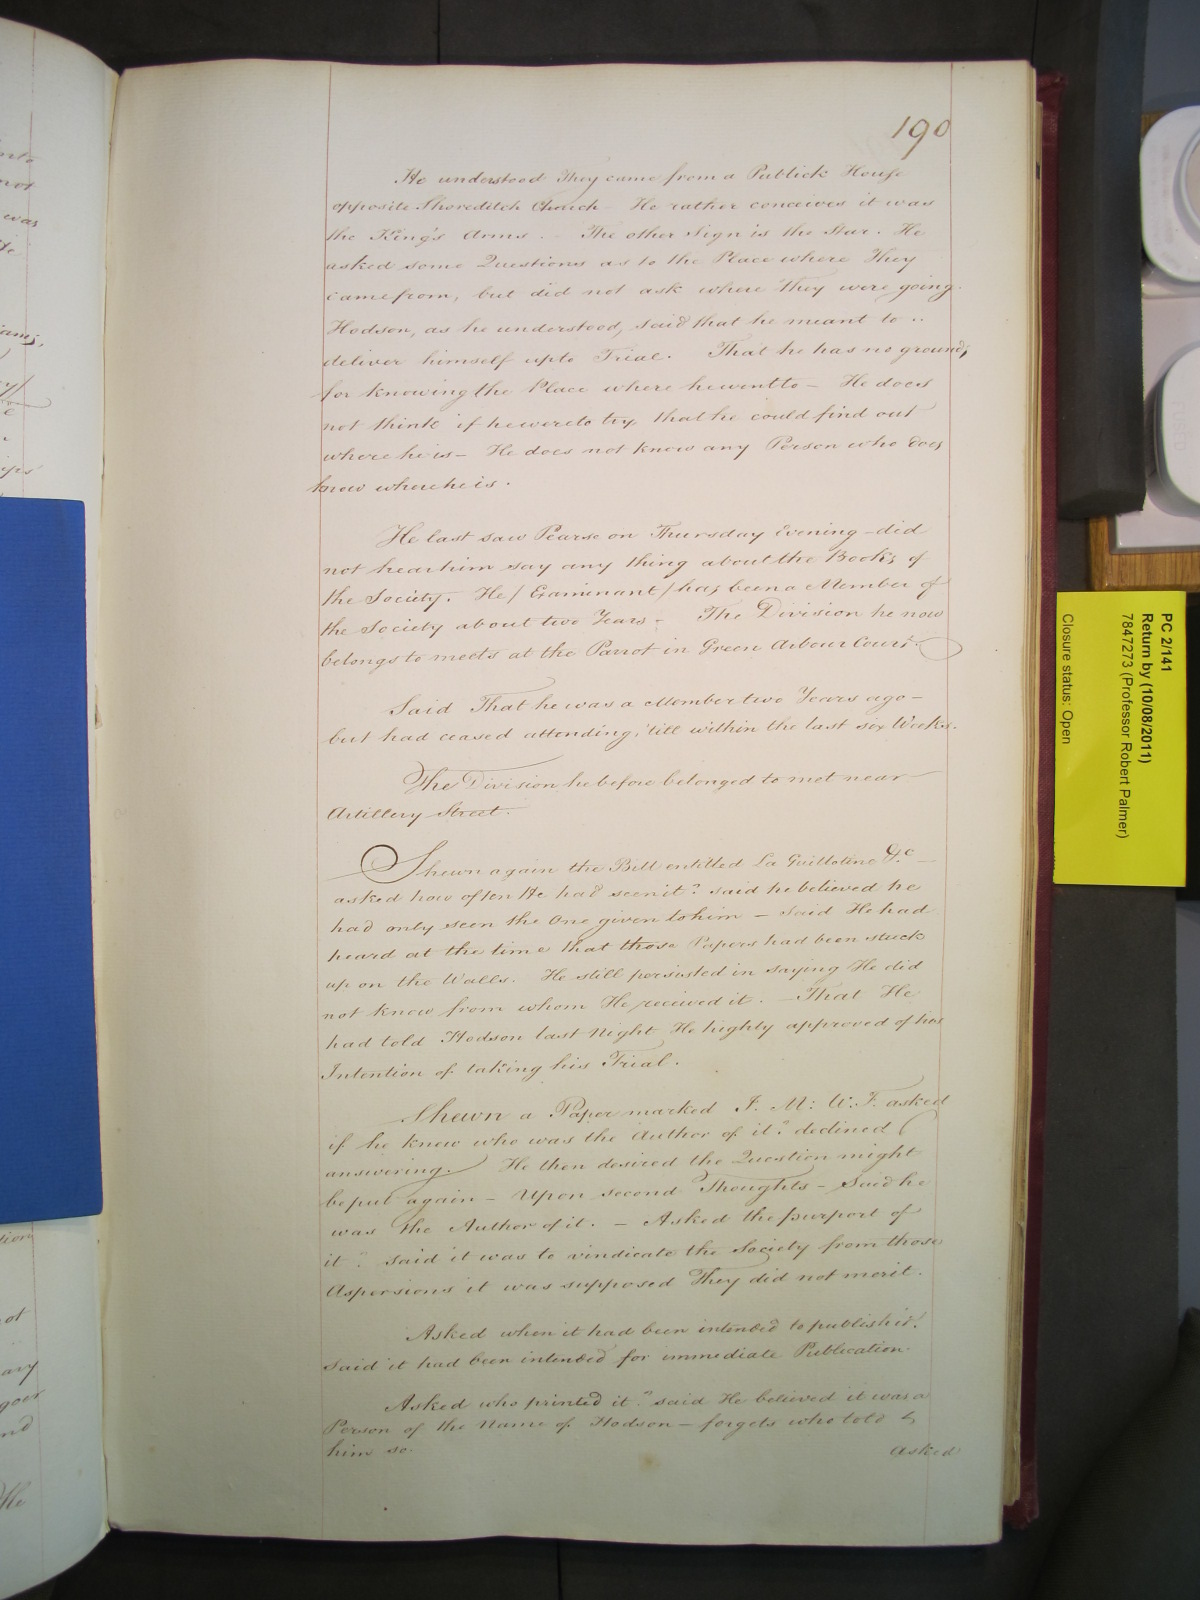 190
He understood They came from a Publick House
opposite Shoreditch Church - He rather conceives it was
the King's Arms. The other Sign is the Star. He
asked some Questions as to the Place where They
came from, but did not ask where They were going.
Hodson, as he understood, said that he meant to ..
deliver himself up to Trial. That he has no grounds
for knowing the Place where he went to - He does
not think if he were to try that he could find out
where he is - He does not know any Person who does
know where he is.
He last saw Pearse on Thursday Evening - did
not hear him say any thing about the Books of
the Society. He / Examinant / has been a Member of
the Society about two Years - The Division he now
belongs to meets at the Parrot in Green Arbour Court.
Said That he was a Member two Years ago -
but had ceased attending, 'till within the last six Weeks.
The Division he before belonged to met near
Artillery Street.
Shewn again the Bill entitled La Guillotine &c -
asked how often He had seen it? said he believed he
had only seen the One given to him - Said He had
heard at the time that those Papers had been stuck
up on the Walls. He still persisted in saying He did
not know from whom He received it. - That He
had told Hodson last Night He highly approved of his
Intention of taking his Trial.
Shewn a Paper marked I. M: W. F. asked
if he knew who was the Author of it? declined
answering. He then desired the Question might
be put again - Upon second Thoughts - Said he
was the Author of it. - Asked the purport of
it? said it was to vindicate the Society from those
Aspersions it was supposed They did not merit.
Asked when it had been intended to publish it?
said it had been intended for immediate Publication.
Asked who printed it? said He believed it was a
Person of the Name of Hodson - forgets who told
him so.
Asked
PC 2/141
Return by (10/08/2011)
7847273 (Professor Robert Palmer)
Closure status: Open